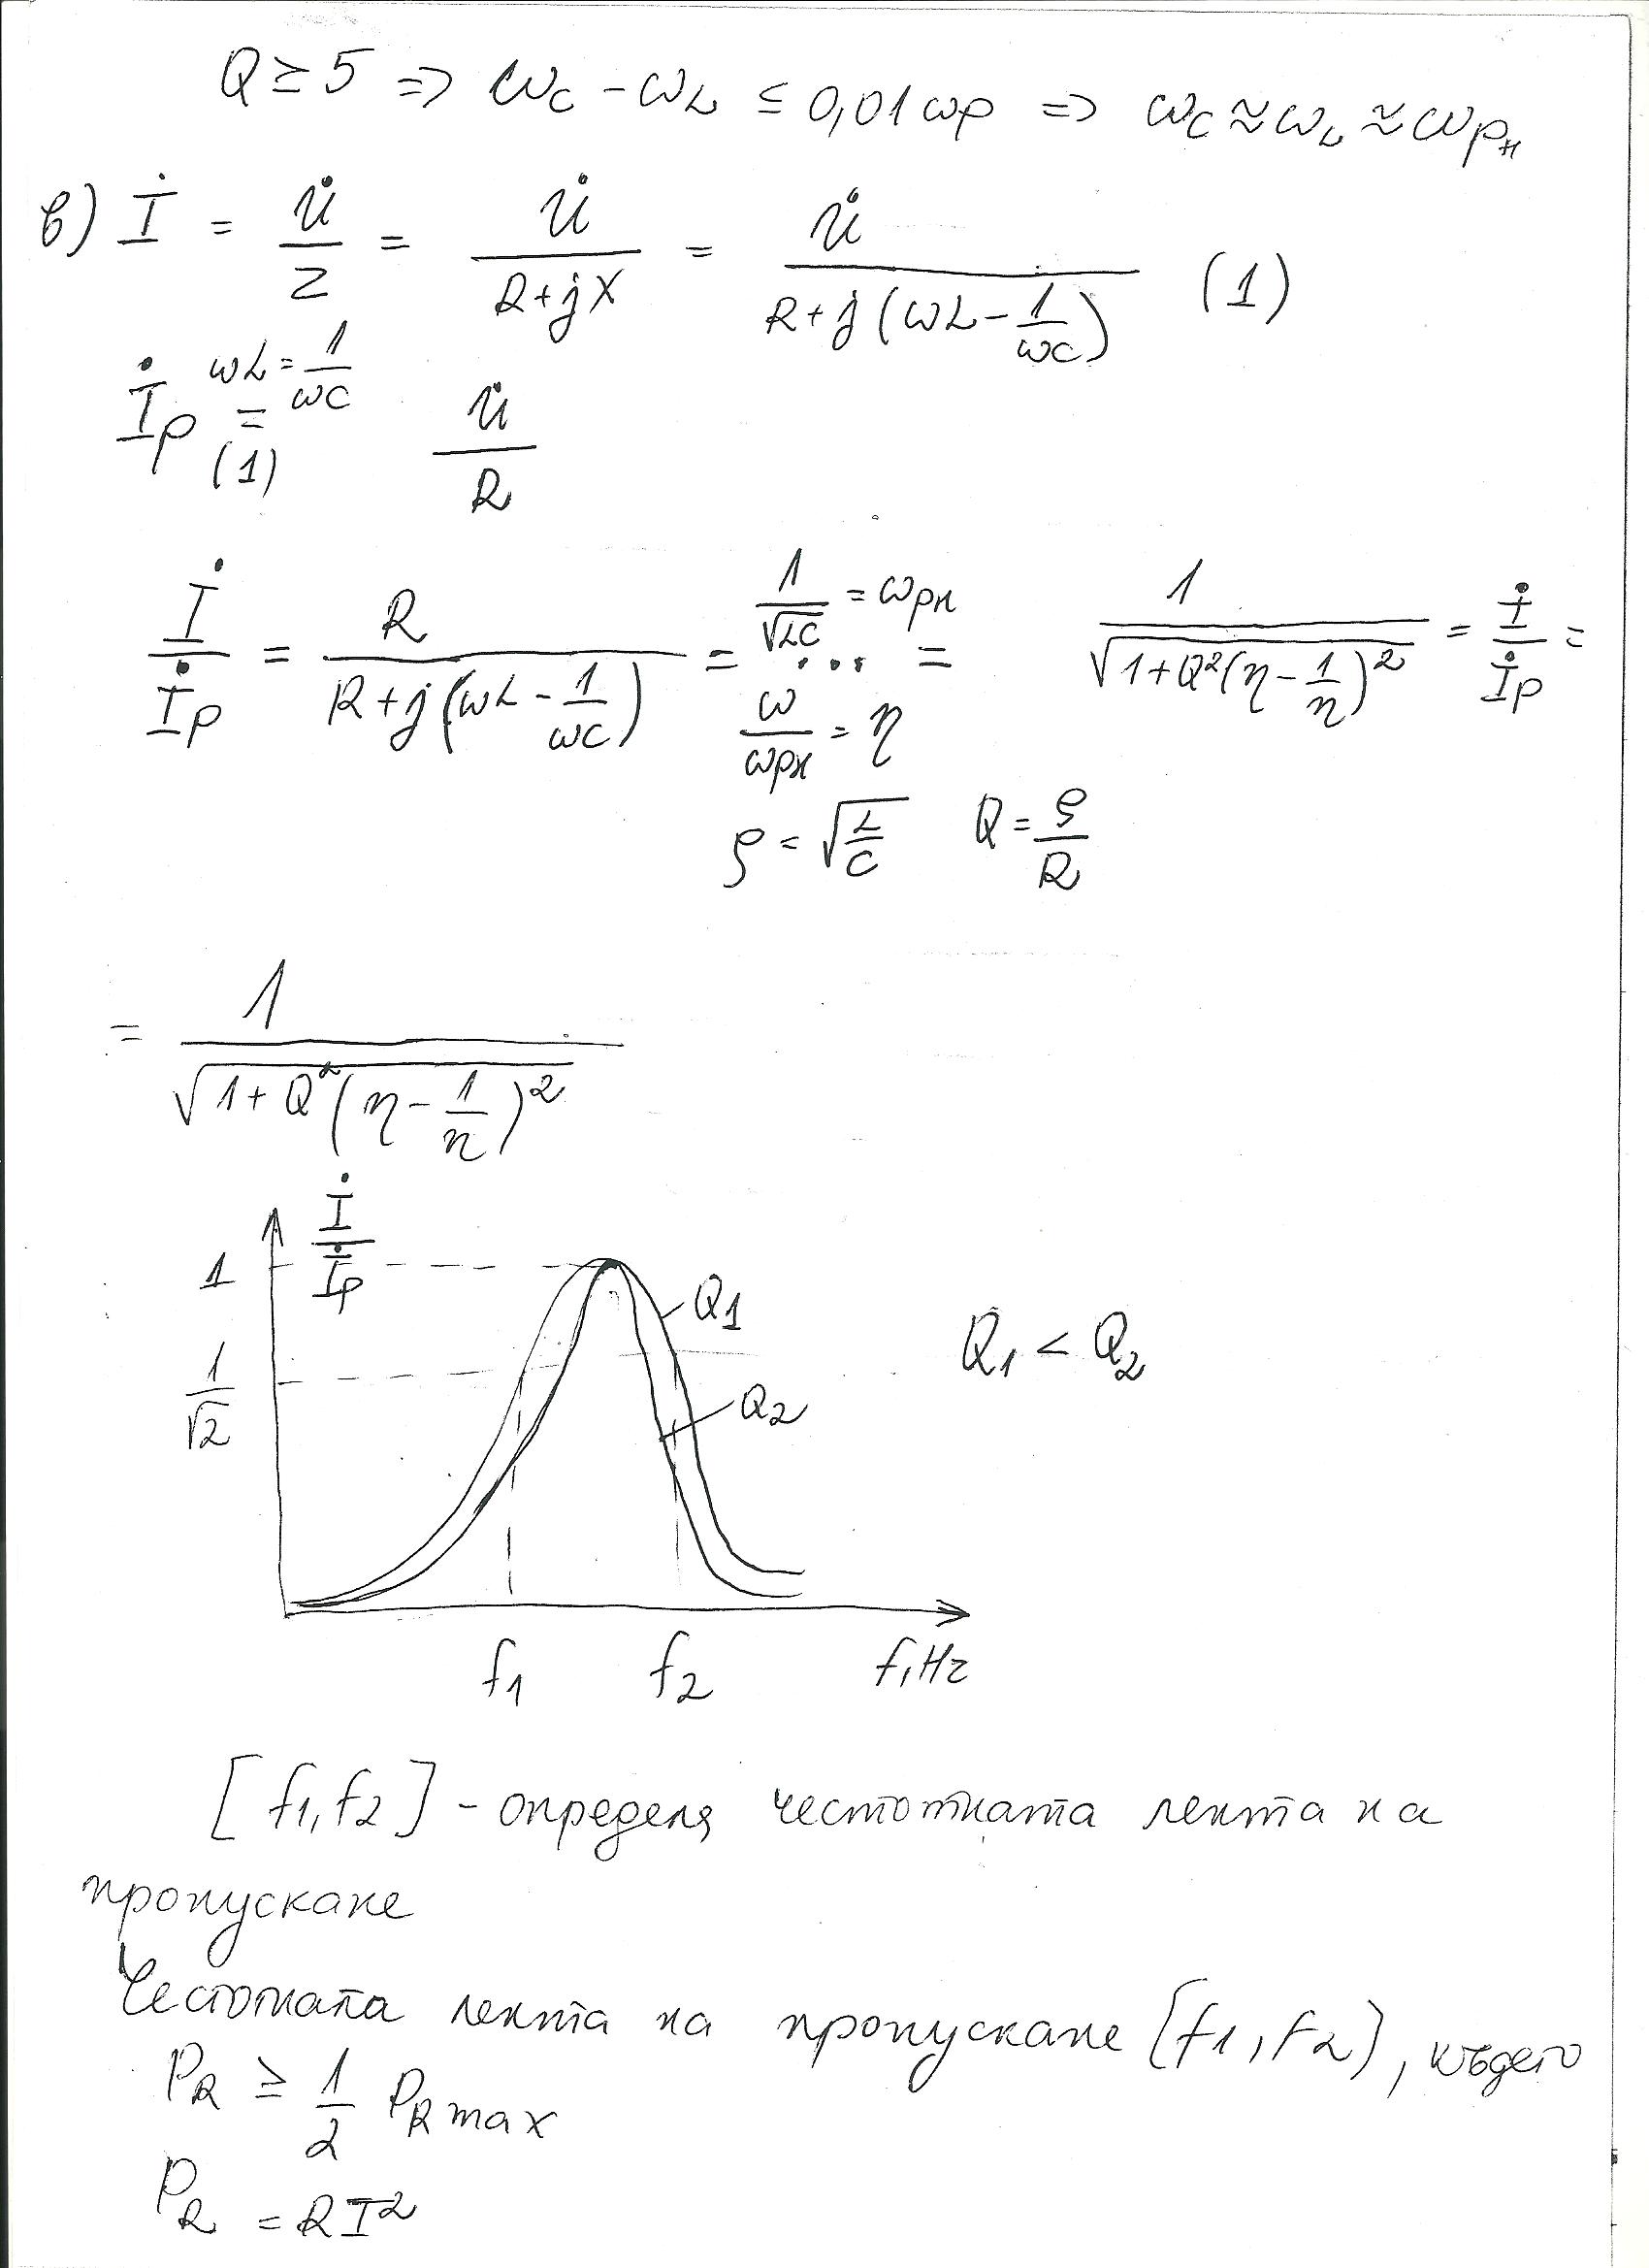 Q ≥ 5 => ωC - ωL ≤ 0,01 ωр => ωC ≈ ωL ≈ ωрн
в) İ = U̇/Z = U̇/(R+jX) = U̇/(R+j(ωL - 1/ωC)) (1)
ωL = 1/ωC
İр = U̇/R
(1)
1/√LC = ωрн
İ/İр = R/(R+j(ωL - 1/ωC)) = ... = 1/√(1+Q²(η - 1/η)²) = İ/İр =
ω/ωрн = η
ρ = √(L/C) Q = ρ/R
= 1/√(1+Q²(η - 1/η)²)
İ/İр
1
Q1
1/√2
Q1 < Q2
Q2
f1 f2 f,Hz
[f1,f2] - определя честотната лента на
пропускане
Честотната лента на пропускане [f1,f2], където
PR ≥ 1/2 PR max
PR = RI²